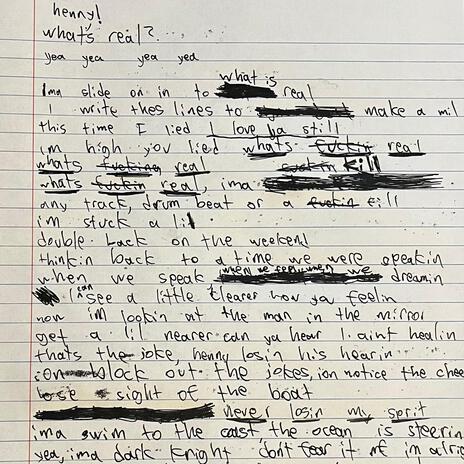 henny!
what's real?
yea yea yea yea
what is
Ima slide on in to real
I write thes lines to make a mil
this time I lied I love ya still
im high you lied whats fuckin real
whats fucking real fuckin kill
whats fuckin real, ima
any track, drum beat or a fuckin fill
im stuck a lil
double back on the weekend
thinkin back to a time we were speakin
when we speak when we dreamin
I can see a little clearer how you feelin
now im lookin at the man in the mirror
get a lil nearer can ya hear I aint healin
thats the joke, henny losin his hearin
ion block out the jokes, ion notice the chee
lose sight of the boat
never losin my sprit
ima swim to the coast, the ocean is steerin
yea, ima dark knight, dont fear it if im alrig